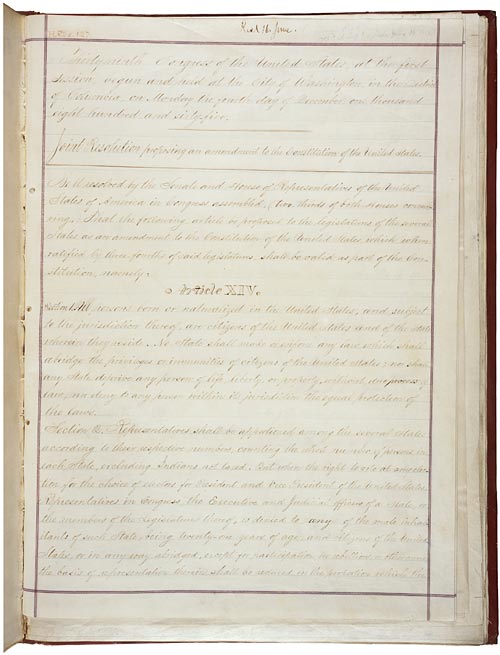 Rec'd 16 June.
Thirty-ninth Congress of the United States, at the first
Session, begun and held at the City of Washington, in the District
of Columbia, on Monday the fourth day of December, one thousand
eight hundred and sixty-five.
Joint Resolution proposing an amendment to the Constitution of the United States.
Be it resolved by the Senate and House of Representatives of the United
States of America in Congress assembled, (two-thirds of both Houses concur-
ring,) That the following article be proposed to the legislatures of the several
States as an amendment to the Constitution of the United States, which, when
ratified by three-fourths of said legislatures, shall be valid as part of the Con-
stitution, namely:
Article XIV.
Section 1. All persons born or naturalized in the United States, and subject
to the jurisdiction thereof, are citizens of the United States and of the State
wherein they reside. No State shall make or enforce any law which shall
abridge the privileges or immunities of citizens of the United States; nor shall
any State deprive any person of life, liberty, or property, without due process of
law, nor deny to any person within its jurisdiction the equal protection of
the laws.
Section 2. Representatives shall be apportioned among the several States
according to their respective numbers, counting the whole number of persons in
each State, excluding Indians not taxed. But when the right to vote at any elec-
tion for the choice of electors for President and Vice President of the United States,
Representatives in Congress, the Executive and Judicial officers of a State, or
the members of the Legislature thereof, is denied to any of the male inhabi-
tants of such State, being twenty-one years of age, and citizens of the United
States, or in any way abridged, except for participation in rebellion or other crime,
the basis of representation therein shall be reduced in the proportion which the